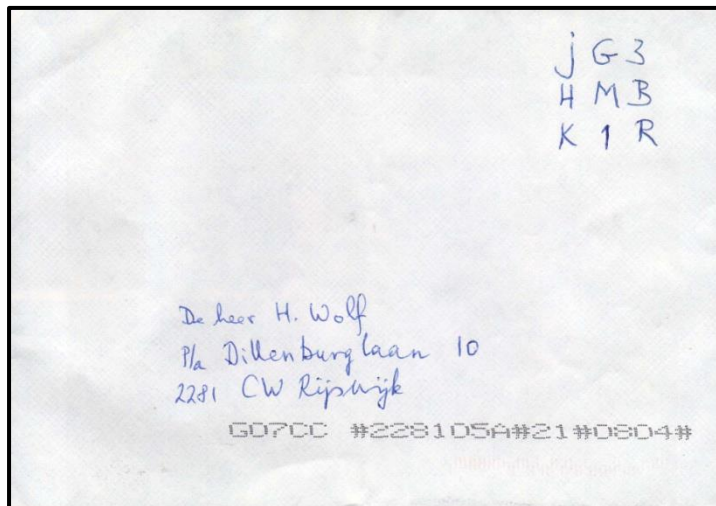 j G 3
H M B
K 1 R
De heer H. Wolf
P/a Dillenburglaan 10
2281 CW Rijswijk
G07CC #228105A#21#0804#